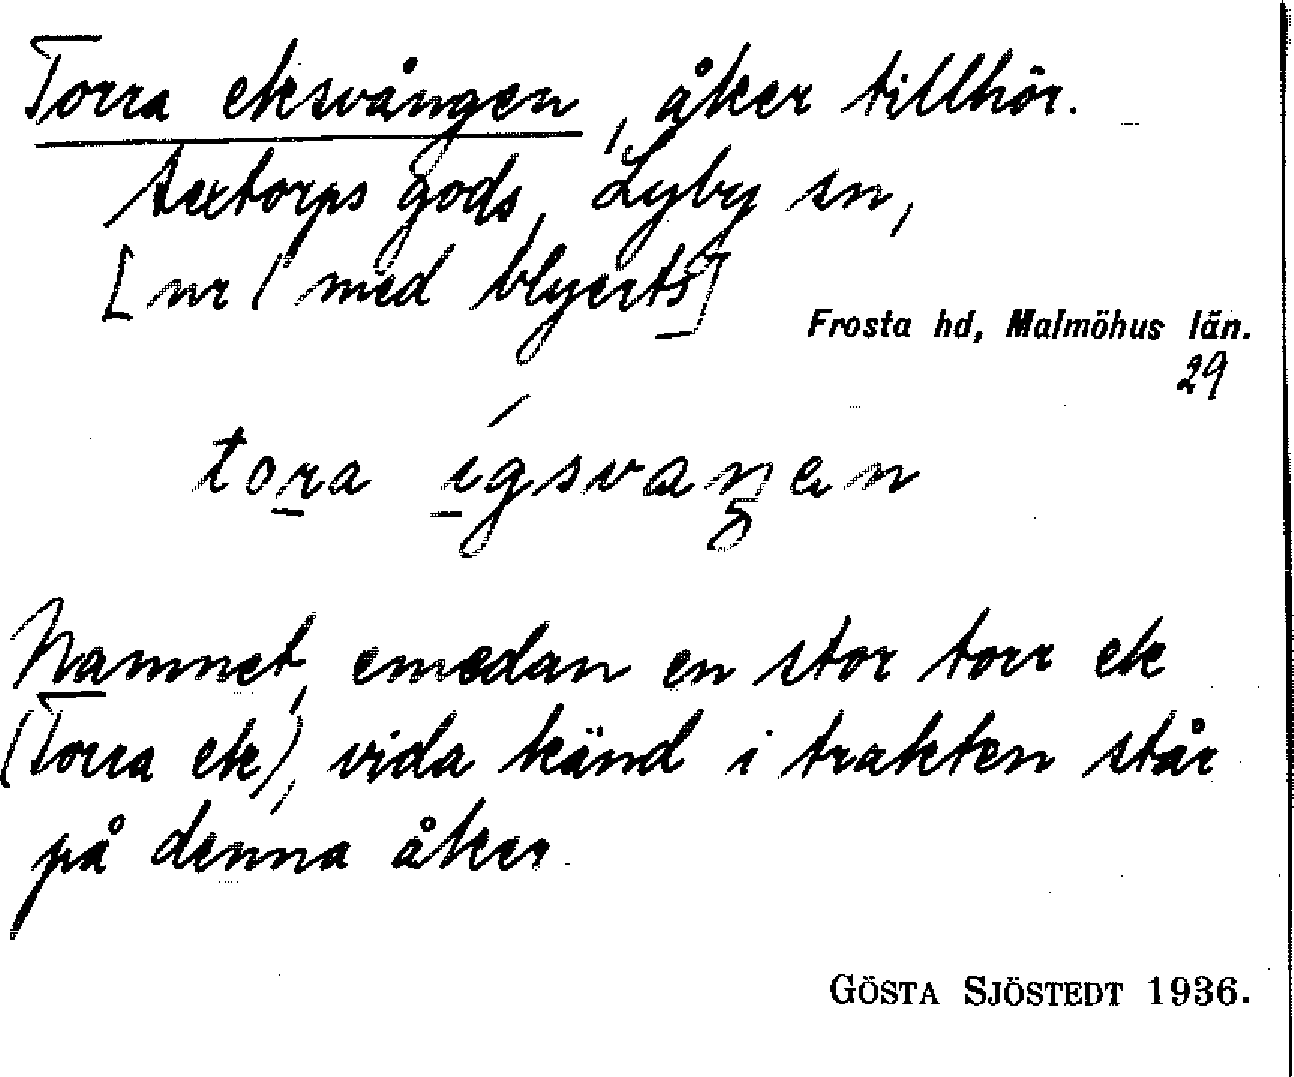 Torra eksvången, åker tillhör.
textorps gods, Lyby sn,
[nr 1 med blyerts]
Frosta hd, Malmöhus län.
29
tora ígsvaŋen
Namnet, emedan en stor torr ek
(Torra ek), vida känd i trakten står
på denna åker.
GÖSTA SJÖSTEDT 1936.